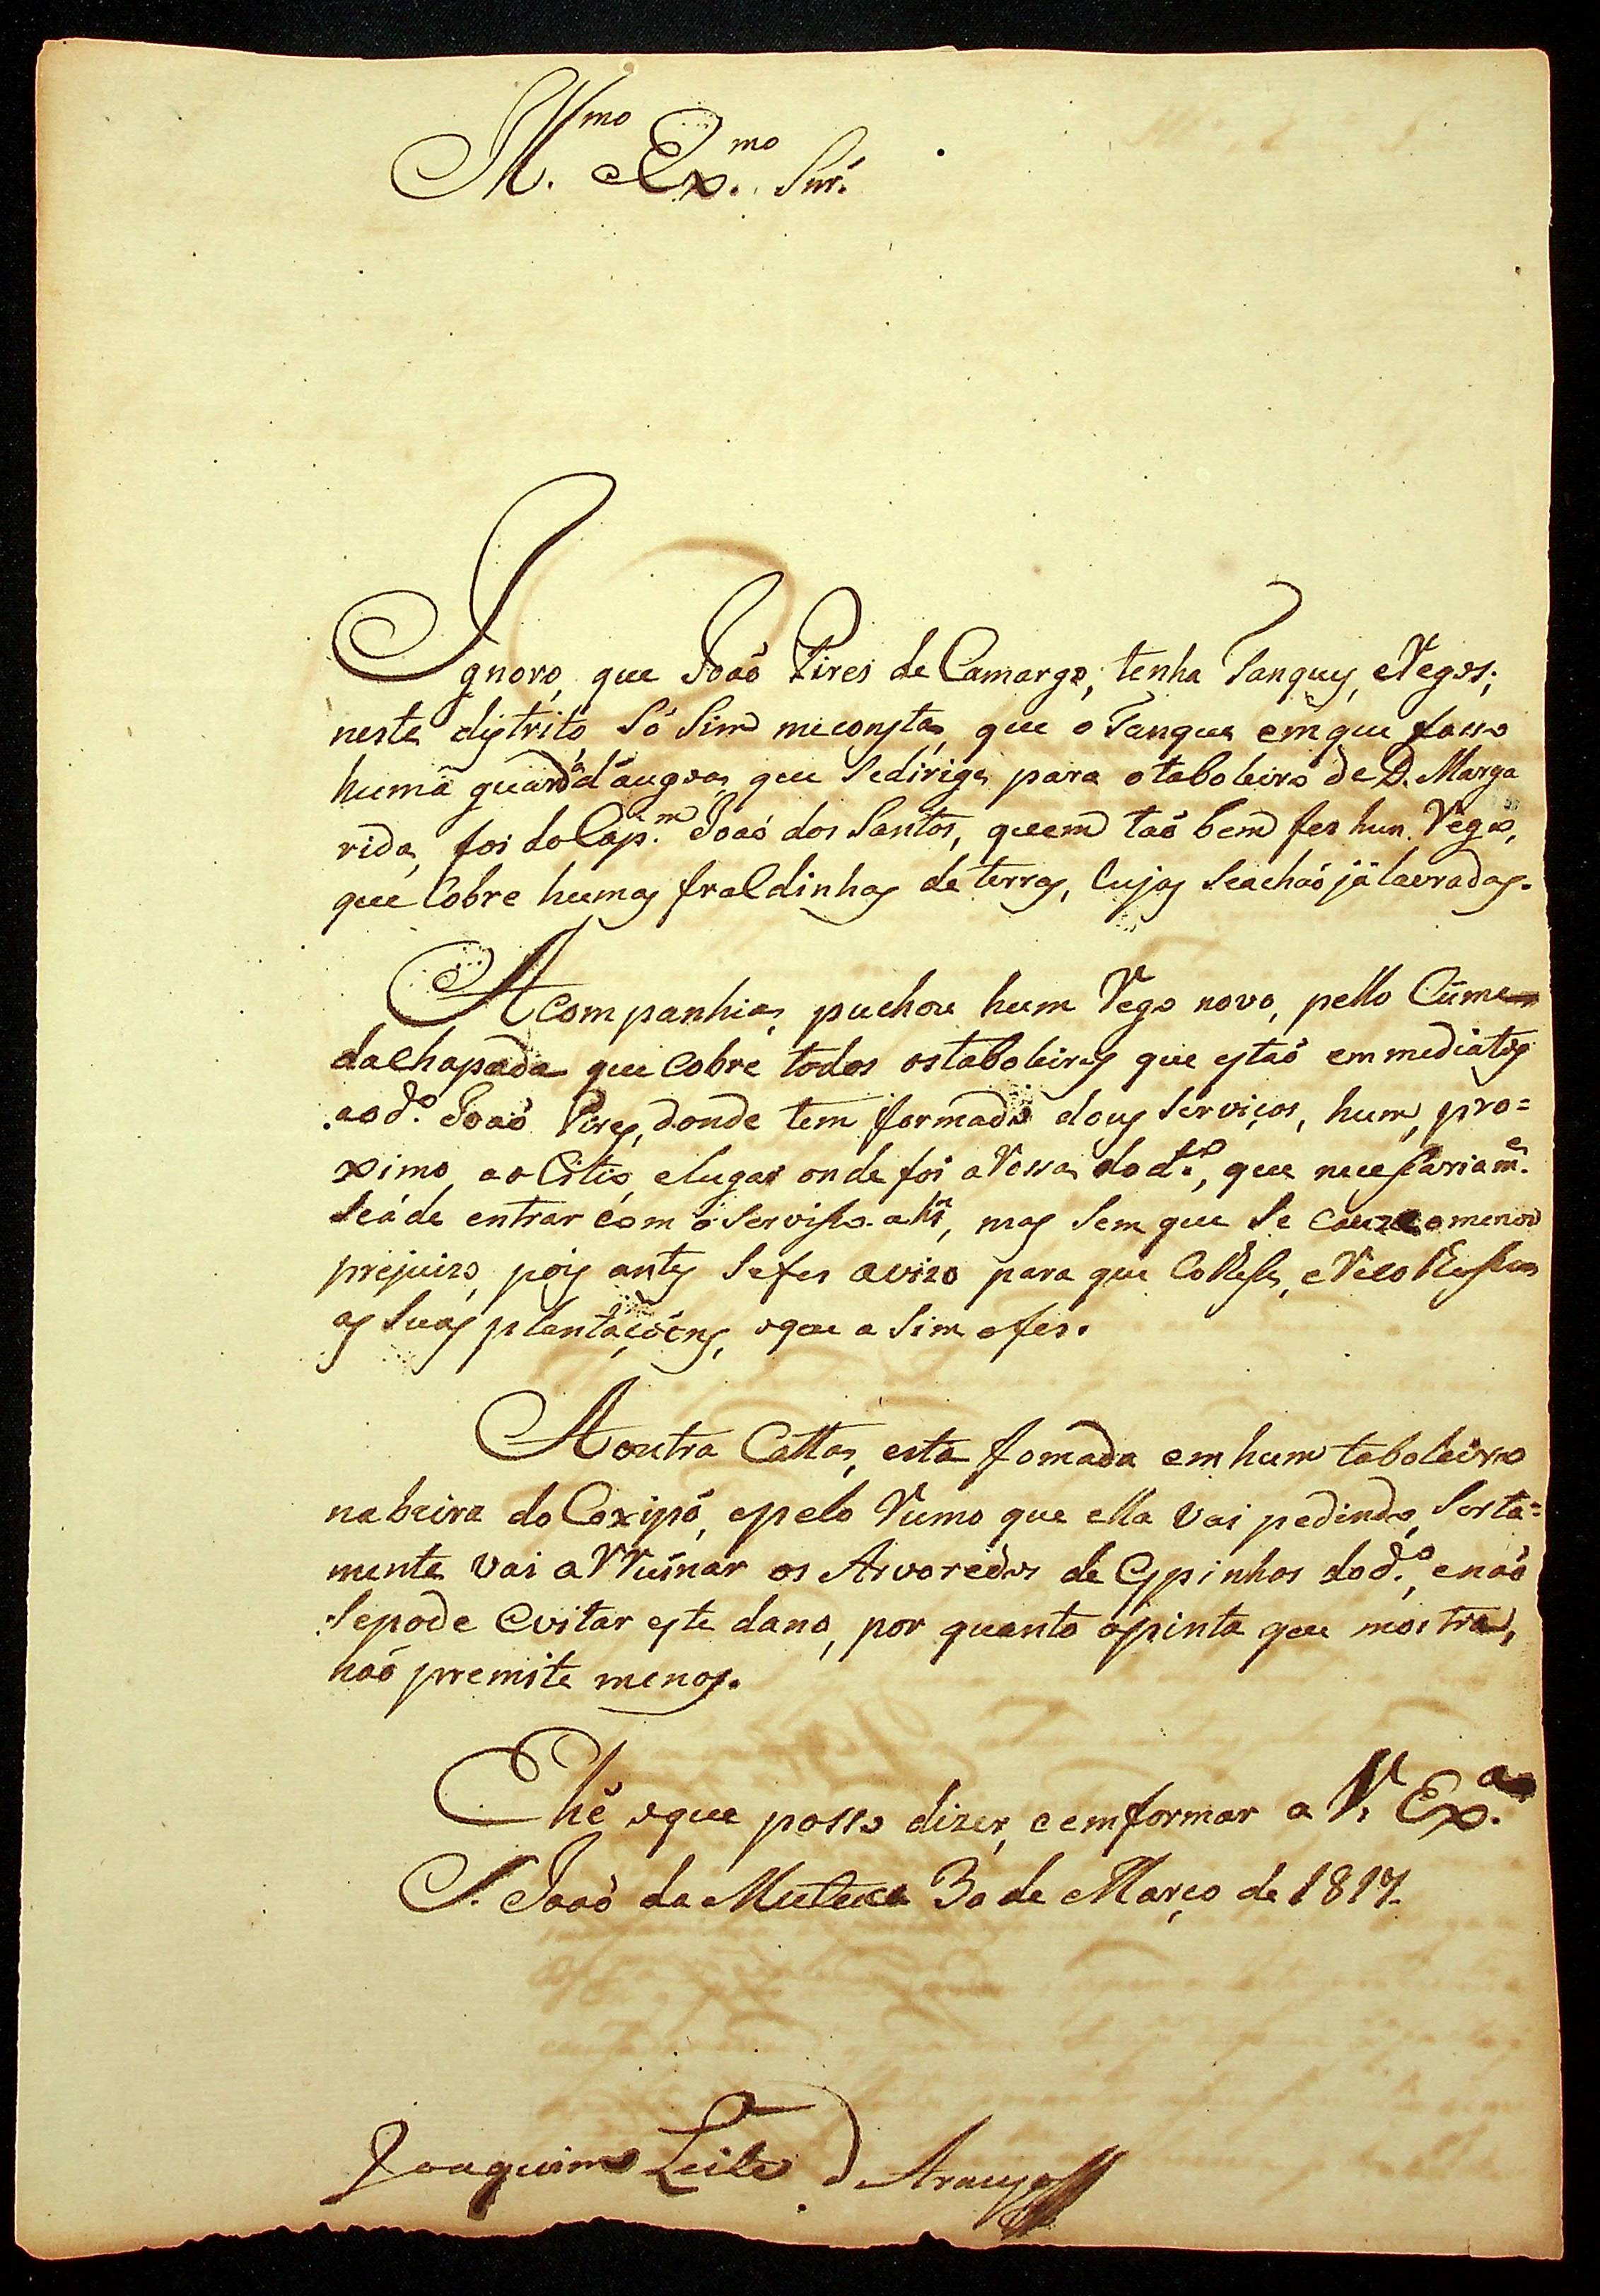 Ill.mo Ex.mo Snr.
Ignoro, que João Pires de Camargo, tenha Tanques, e Regos;
neste destrito só sim me consta, que o Tanque em que faço
humã guarda d'augoa, que se dirige para o taboleiro de D. Marga
rida, foi do Cap.m João dos Santos, quem tão bem fes hun Rego,
que Cobre humas fraldinhas de terras, Cujas se achão já lavradas.
A Companhia, puchou hum Rego novo, pello Cume
da chapada que Cobre todos os taboleiros que estão emmediatos
ao d.o João Pires, donde tem formado dous Serviços, hum, pro=
ximo, ao Citio, e lugar onde foi a Rossa do d.o, que necessariam.e
se á de entrar com o servisso a hi, mas sem que se cauze o menor
prejuizo, pois antes se fes avizo para que Colhese, e Recolhese
as Suas plantaçoens, o que a Sim o fes.
A outra Catta, esta fomada em hum taboleiro
na beira do Coxipó, e pelo Rumo que ella vai pedindo, Serta=
mente vai a RRuinar os Arvoredos de Espinhos do d.o, e não
se pode Evitar este dano, por quanto a pinta que mostra,
não premite menos.
E hé o que posso dizer, e emformar a V. Ex.a
S. João da Mutuca 30 de Março de 1817.
Joaquim Leite d Araujo